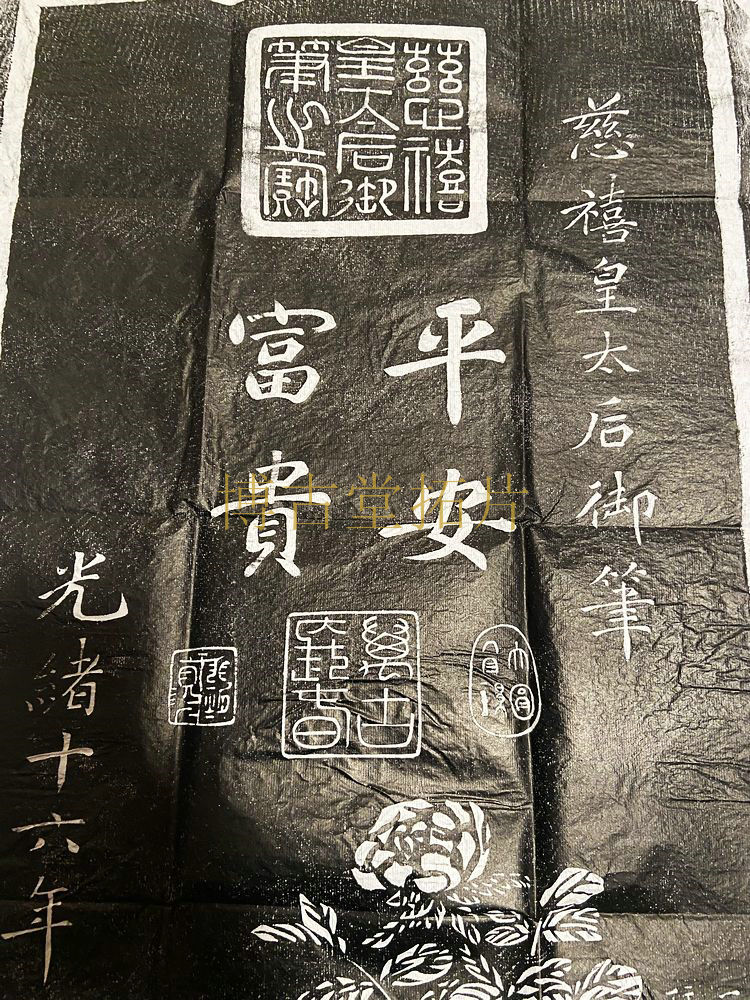 慈禧皇太后御筆
慈禧
皇太后御
筆之寶
平安
富貴
光緒十六年
博古堂拓片